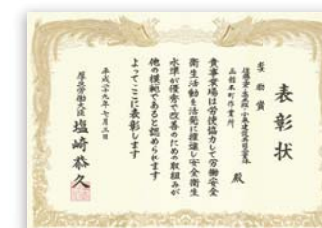 表彰状
奨励賞
殿
貴事業場は労使協力して労働安全
衛生活動を活発に推進し安全衛生
水準が優秀で改善のための取組みが
他の模範であると認められます
よってここに表彰します
平成二十九年七月三日
厚生労働大臣 塩崎恭久